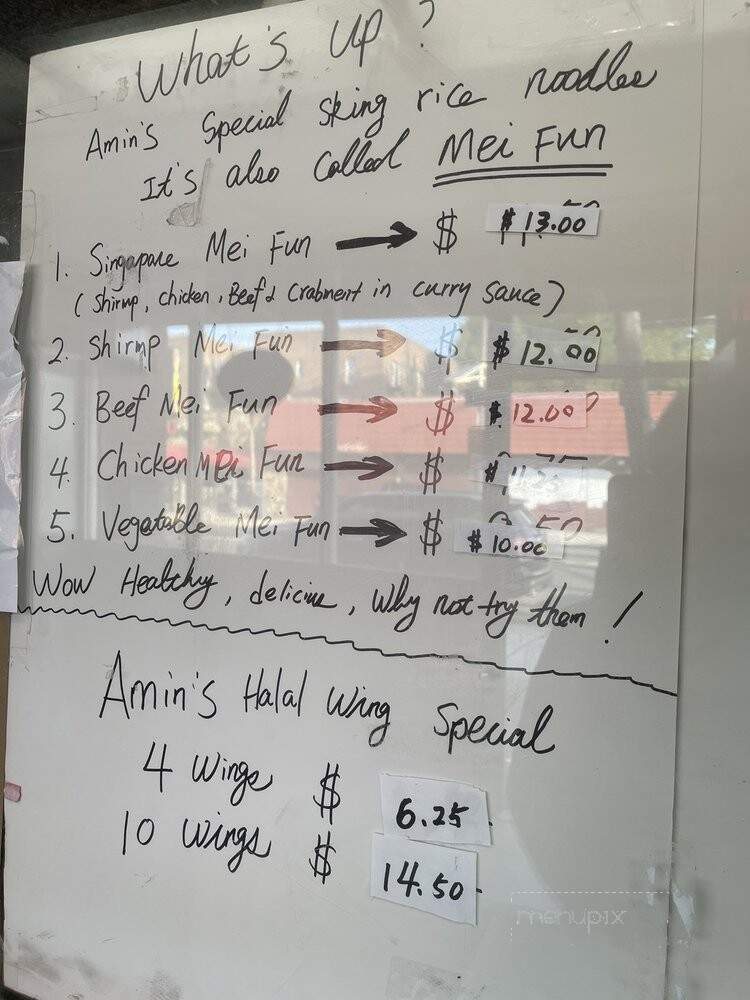 What's up?
Amin's Special Sking rice noodles
It's also Called Mei Fun
1. Singapare Mei Fun → $ $13.00
(Shirmp, chicken, Beef & Crabment in curry sauce)
2. Shirmp Mei Fun → $ $12.00
3. Beef Mei Fun → $ $12.00
4. Chicken Mei Fun → $
5. Vegatable Mei Fun → $ $10.00
Wow Healthy, delicius, Why not try them!
Amin's Halal Wing Special
4 Wings $ 6.25
10 Wings $ 14.50
menupix